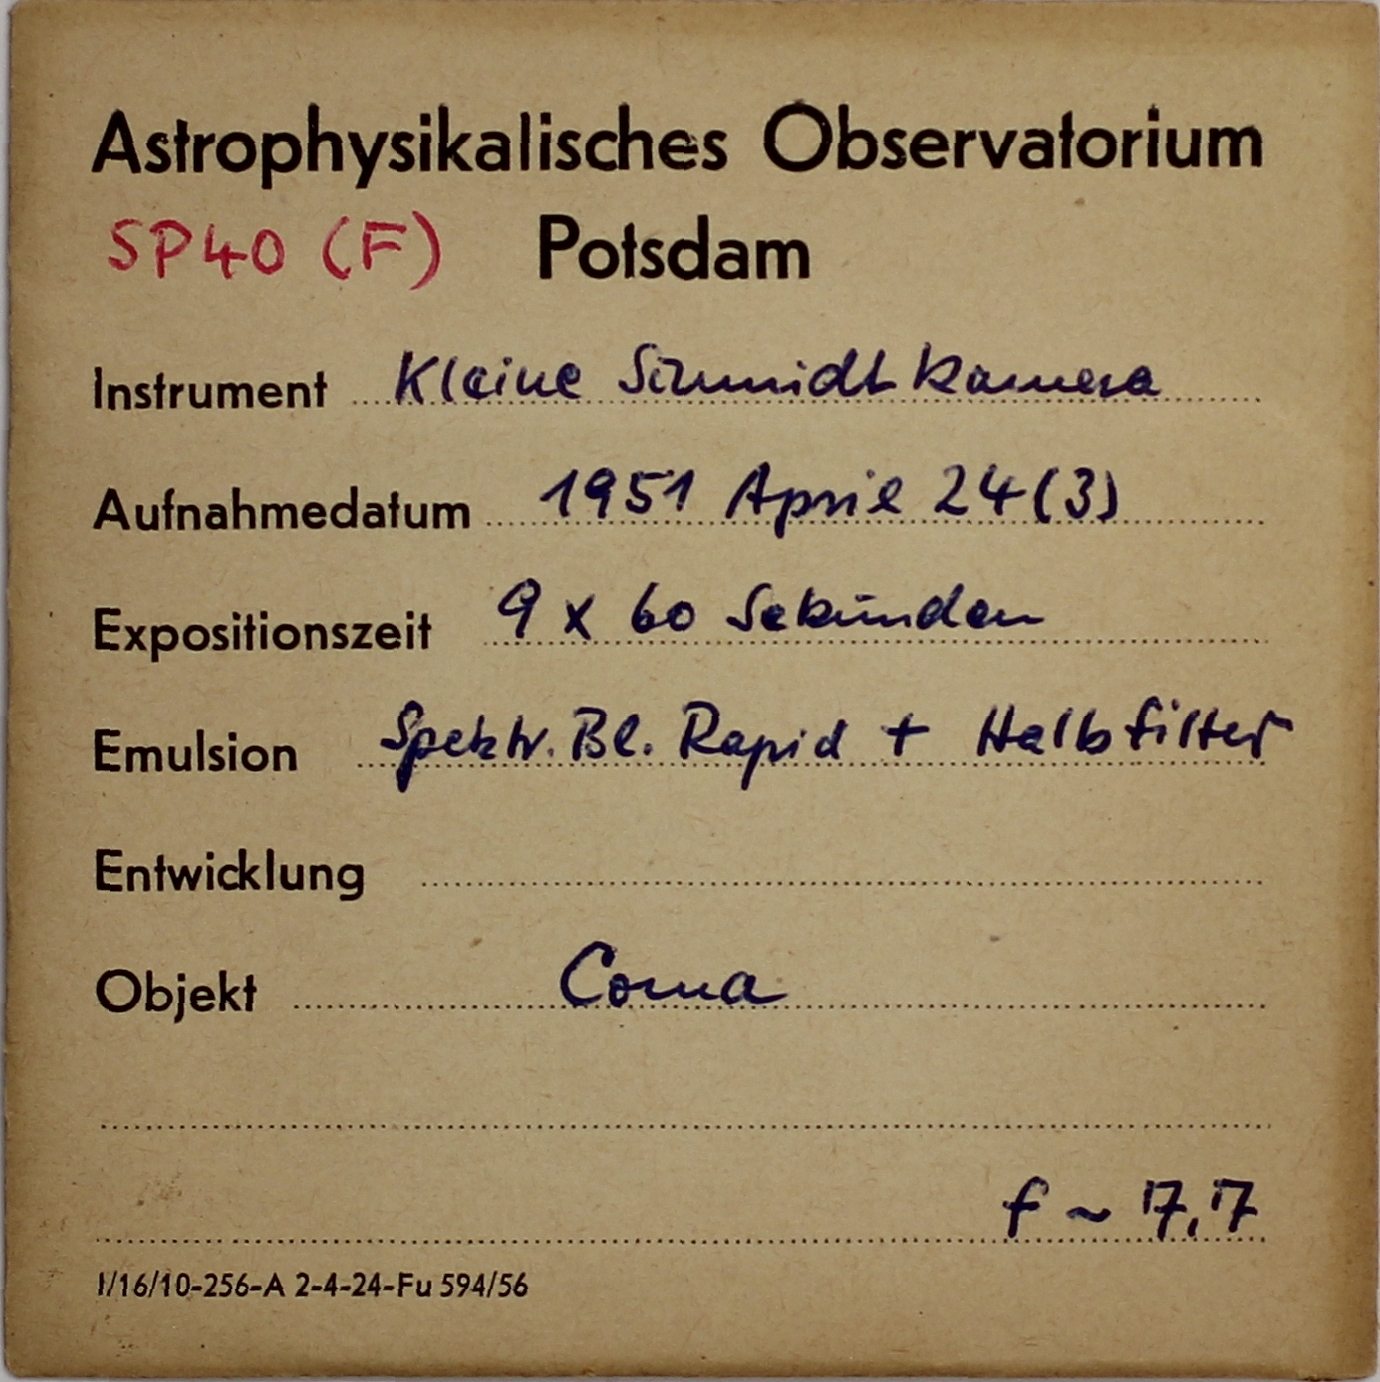 Astrophysikalisches Observatorium
SP40 (F) Potsdam
Instrument Kleine Schmidtkamera
Aufnahmedatum 1951 April 24 (3)
Expositionszeit 9 x 60 Sekunden
Emulsion Spektr. Bl. Rapid + Halbfilter
Entwicklung
Objekt Coma
f ~ 17,17
I/16/10-256-A 2-4-24-Fu 594/56